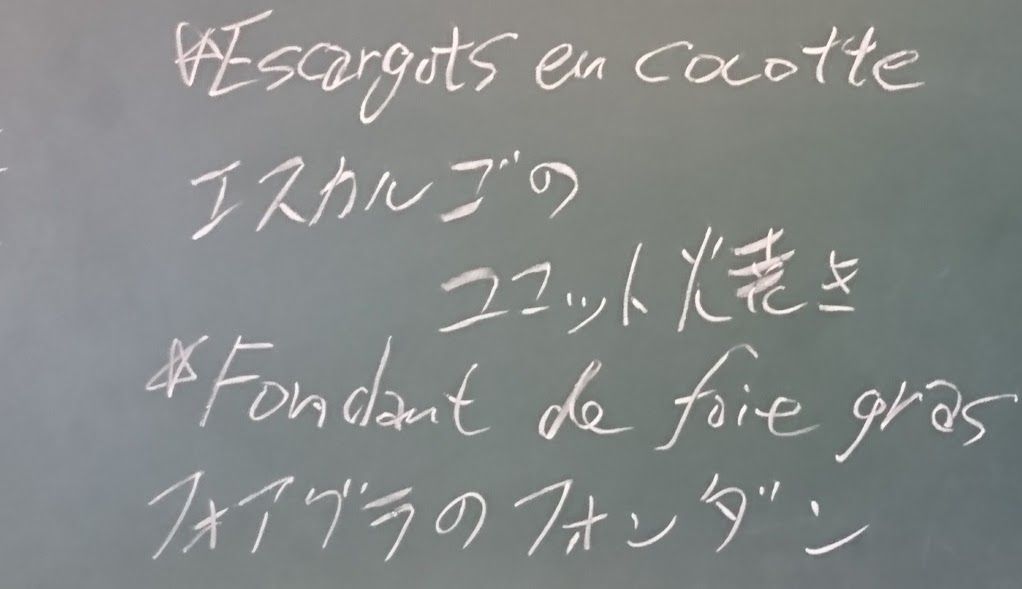 ☆Escargots en cocotte
エスカルゴの
ココット焼き
☆Fondant de foie gras
フォアグラのフォンダン